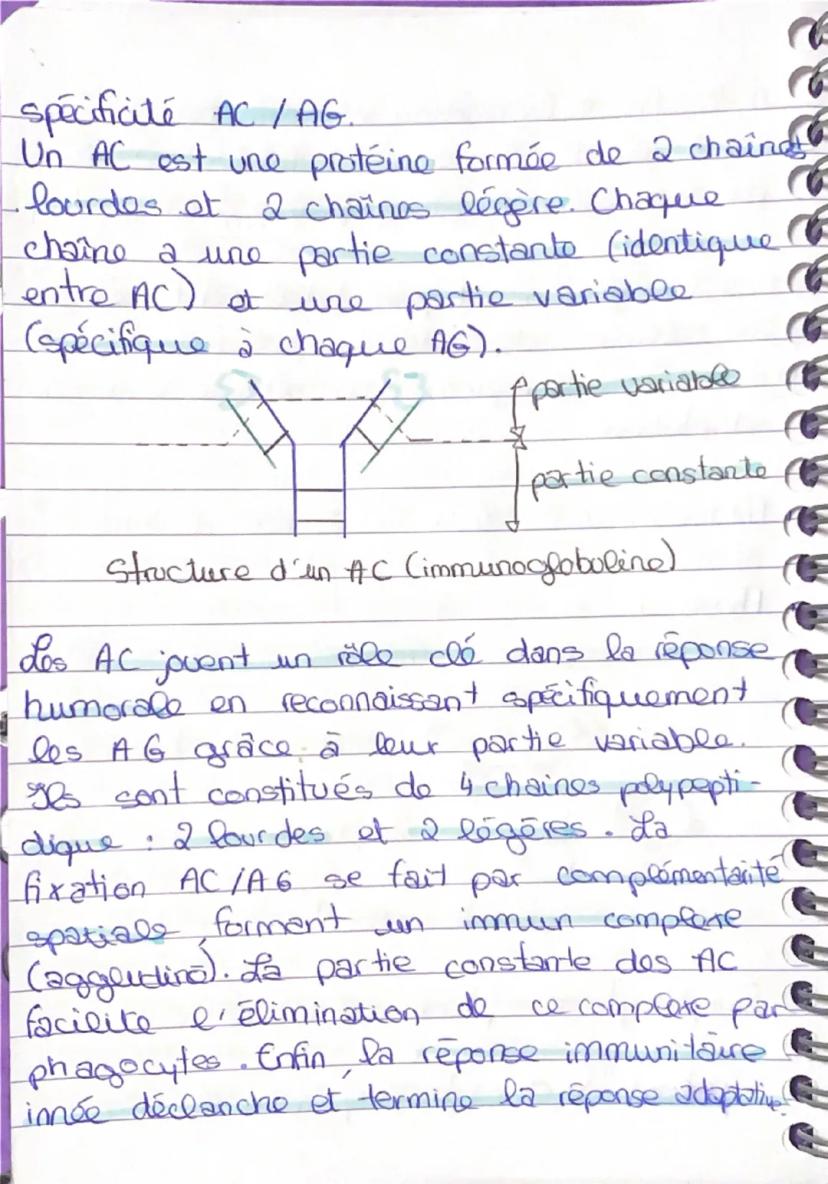 spécificité AC / AG.
Un AC est une protéine formée de 2 chaînes
lourdes et 2 chaînes légère. Chaque
chaîne a une partie constante (identique
entre AC) et une partie variable
(spécifique à chaque AG).
partie variable
partie constante
Structure d'un AC (immunoglobuline)
Les AC jouent un rôle clé dans la réponse
humorale en reconnaissant spécifiquement
les AG grâce à leur partie variable.
Ils sont constitués de 4 chaines polypepti-
dique : 2 lourdes et 2 légères. La
fixation AC/AG se fait par complémentarité
spatiale, forment un immun complexe
(agglutiné). La partie constante des AC
facilite l'élimination de ce complexe par
phagocytes. Enfin, la réponse immunitaire
innée déclanche et termine la réponse adaptative.